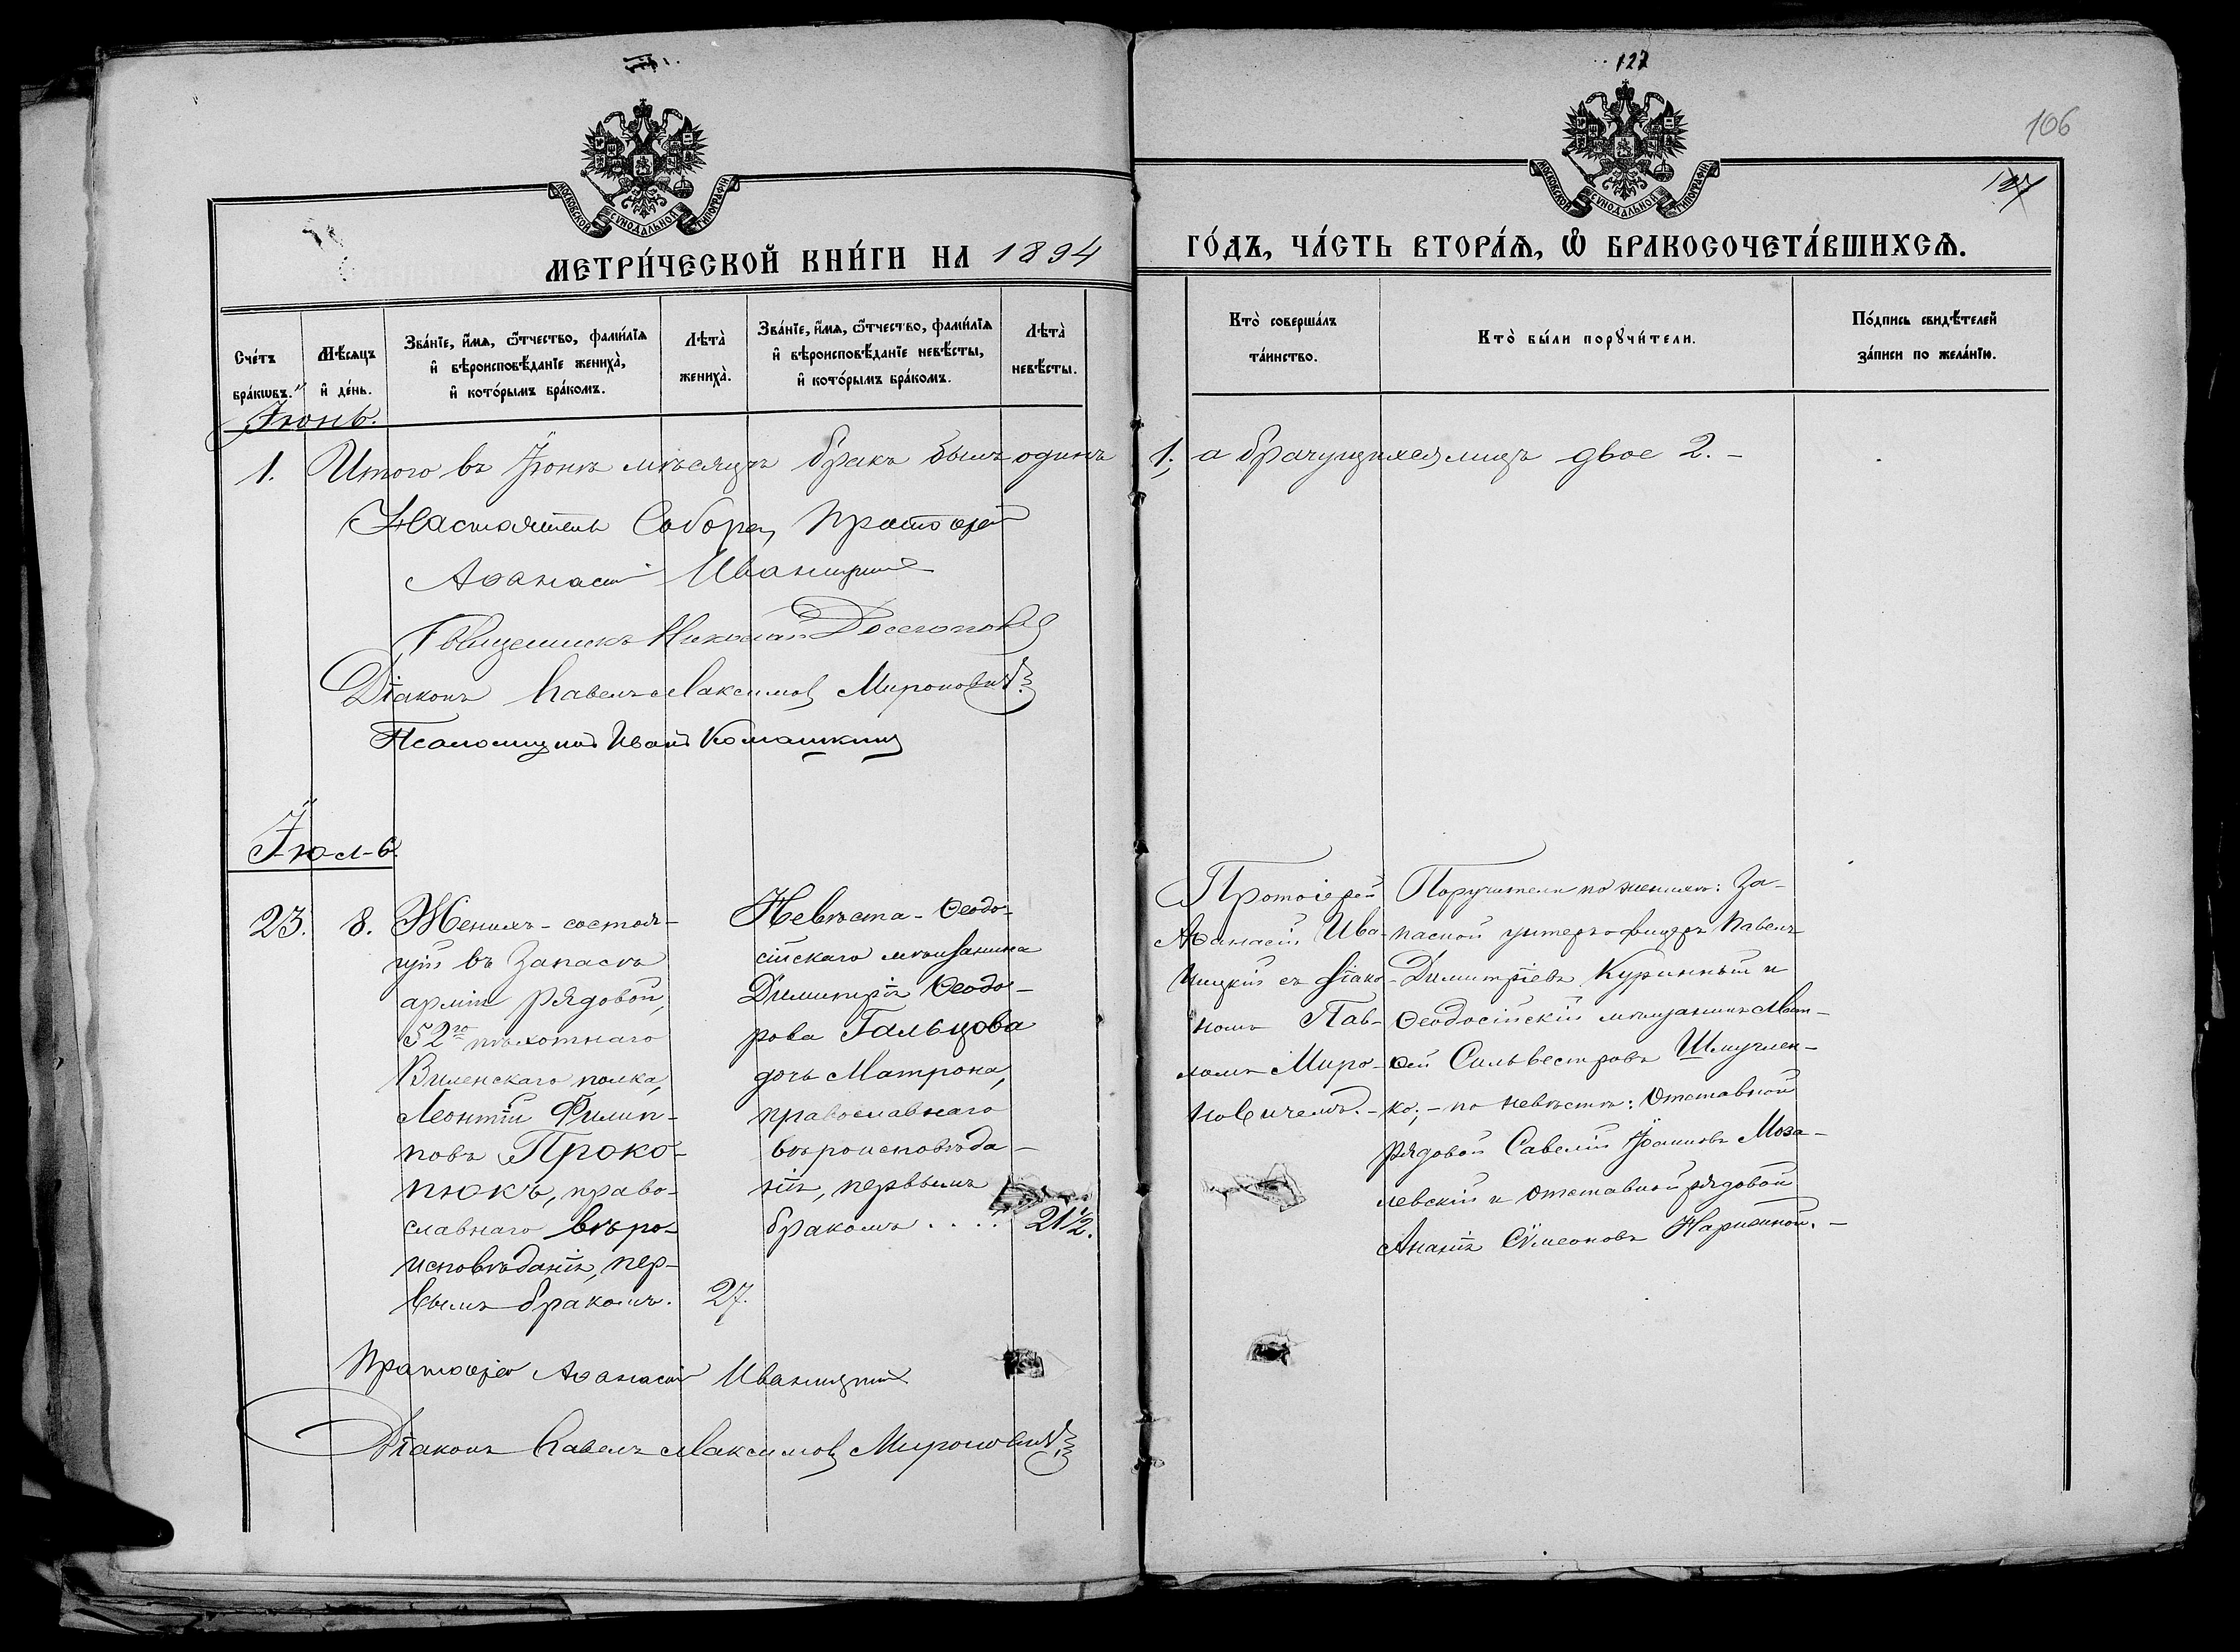 127
106
МОСКОВСКОЙ СѴНОДАЛЬНОЙ ТИПОГРАФІИ
МОСКОВСКОЙ СѴНОДАЛЬНОЙ ТИПОГРАФІИ
МЕТРИ́ЧЕСКОЙ КНИ́ГИ НА 1894
ГО́ДЪ, ЧА́СТЬ ВТОРА́Ѧ, Ѡ БРАКОСОЧЕТА́ВШИХСѦ.
Сче́тъ
бра́кѡвъ.
Мѣ́сѧцъ
и́ де́нь.
Зва́нїе, и́мѧ, ѻ́тчество, фами́лїѧ
и́ вѣроисповѣ́данїе жениха̀,
и́ кото́рымъ бра́комъ.
Лѣта̀
жениха̀.
Зва́нїе, и́мѧ, ѻ́тчество, фами́лїѧ
и́ вѣроисповѣ́данїе невѣ́сты,
и́ кото́рымъ бра́комъ.
Лѣта̀
невѣ́сты.
Кто̀ соверша́лъ
та́инство.
Кто̀ бы́ли порꙋчи́тели.
По́дпись свидѣ́телей
за́писи по жела́нїю.
Іюнь.
1. Итого въ Іюнѣ мѣсяцѣ бракъ былъ одинъ 1. а брачущихся лицъ двое 2. –
Настоятель Собора, Протоіерей
Аѳанасій Иваницкій
Священникъ Николай
Діаконъ Павелъ Максимовъ Мироновичъ
Псаломщикъ Иванъ Комашкинъ
Іюль.
23. 8.
Женихъ – состоя-
щій въ запасѣ
арміи рядовой,
52го пѣхотнаго
Виленскаго полка,
Леонтій Филип-
повъ Проко-
пюкъ, право-
славнаго вѣро-
исповѣданія, пер-
вымъ бракомъ. 27.
Невѣста – Ѳеодо-
сійскаго мѣщанина
Димитрія Ѳеодо-
рова Гальцова
дочь Матрона,
православнаго
вѣроисповѣда-
нія, первымъ
бракомъ . . . . 21½.
Протоіерей
Аѳанасій Ива-
ницкій съ діако-
номъ Пав-
ломъ Миро-
новичемъ. –
Поручители по женихѣ: За-
пасной унтеръ-офицеръ Павелъ
Димитріевъ Куринный и
Ѳеодосійскій мѣщанинъ Мат-
ѳей Сильвестровъ Шмучлен-
ко; – по невѣстѣ: Отставной
рядовой Савелій Іоанновъ Моза-
левскій и отставной рядовой
Ананія Сѵмеоновъ Нарижной. –
Протоіерей Аѳанасій Иваницкій
Діаконъ Павелъ Максимовъ Мироновичъ